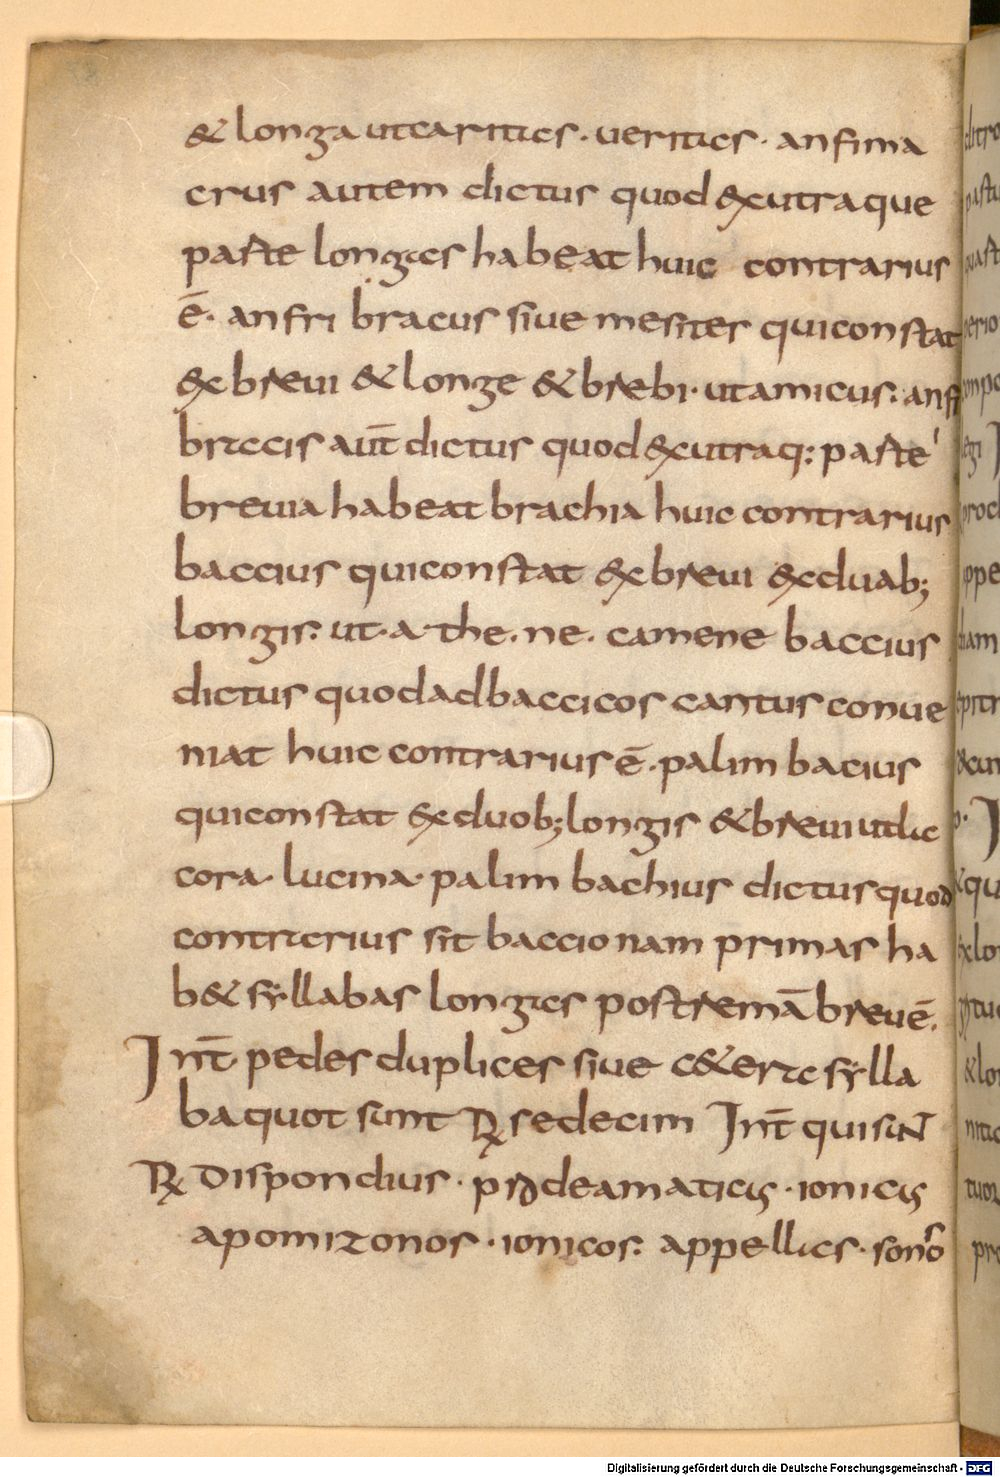 & longa ut caritas · ueritas · anfima
crus autem dictus quod &xutraque
parte longas habeat huic contrarius
ē· anfri bracus siue mesiter qui constat
&x breui & longe & brebi · ut amicus: anfi
bracis aut̄ dictus quod &xutraq: parte
breuia habeat brachia huic contrarius
baccius qui constat &x breui &x duab;
longis: ut · a · the · ne · camene baccius
dictus quod ad baccicos cantus conue
niat huic contrarius ē · palim bacius
qui constat &x duob; longis & breui ut lic
cora · lucina · palim bachius dictus quod
contrarius sit baccio nam primas ha
b& syllabas longas postremā breuē.
Int̄ pedes duplices siue c&era sylla
ba quot sunt R sedecim Int̄ qui suN
R Dispondius · deamaticis · ionicis
apomizonos · ionicos: appellas · sono
Digitalisierung gefördert durch die Deutsche Forschungsgemeinschaft - DFG